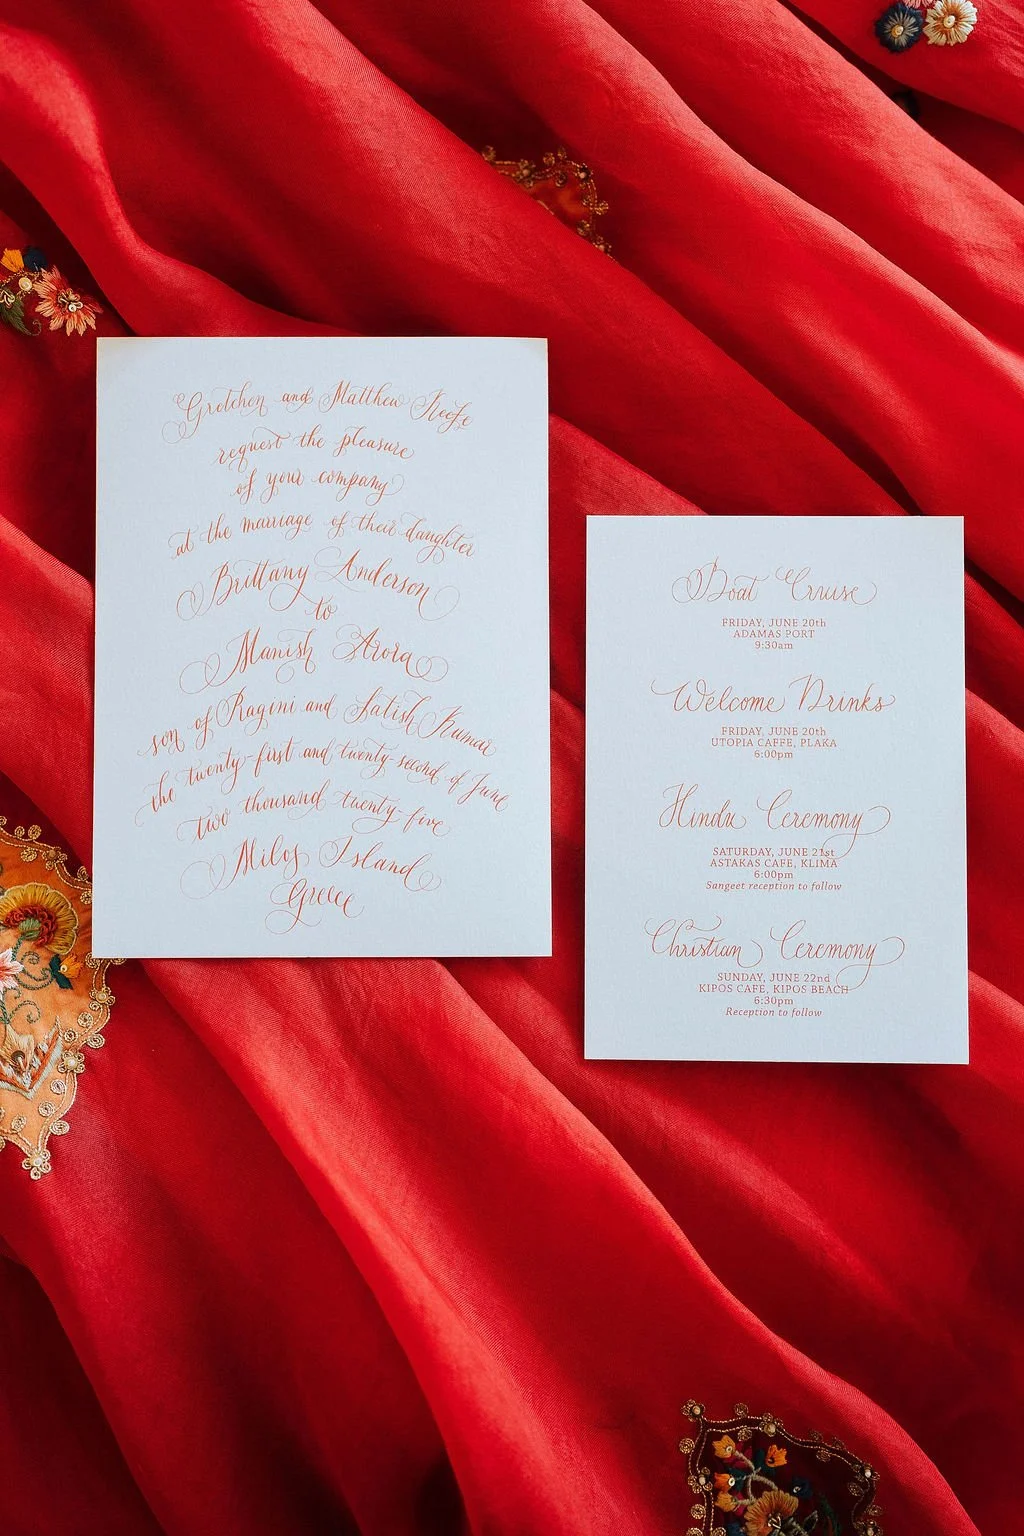 Gretchen and Matthew Keefe
request the pleasure
of your company
at the marriage of their daughter
Brittany Anderson
to
Manish Arora
son of Ragini and Satish Kumar
the twenty-first and twenty-second of June
two thousand twenty-five
Milos Island
Greece
Boat Cruise
FRIDAY, JUNE 20th
ADAMAS PORT
9:30am
Welcome Drinks
FRIDAY, JUNE 20th
UTOPIA CAFFE, PLAKA
6:00pm
Hindu Ceremony
SATURDAY, JUNE 21st
ASTAKAS CAFE, KLIMA
6:00pm
Sangeet reception to follow
Christian Ceremony
SUNDAY, JUNE 22nd
KIPOS CAFE, KIPOS BEACH
6:30pm
Reception to follow